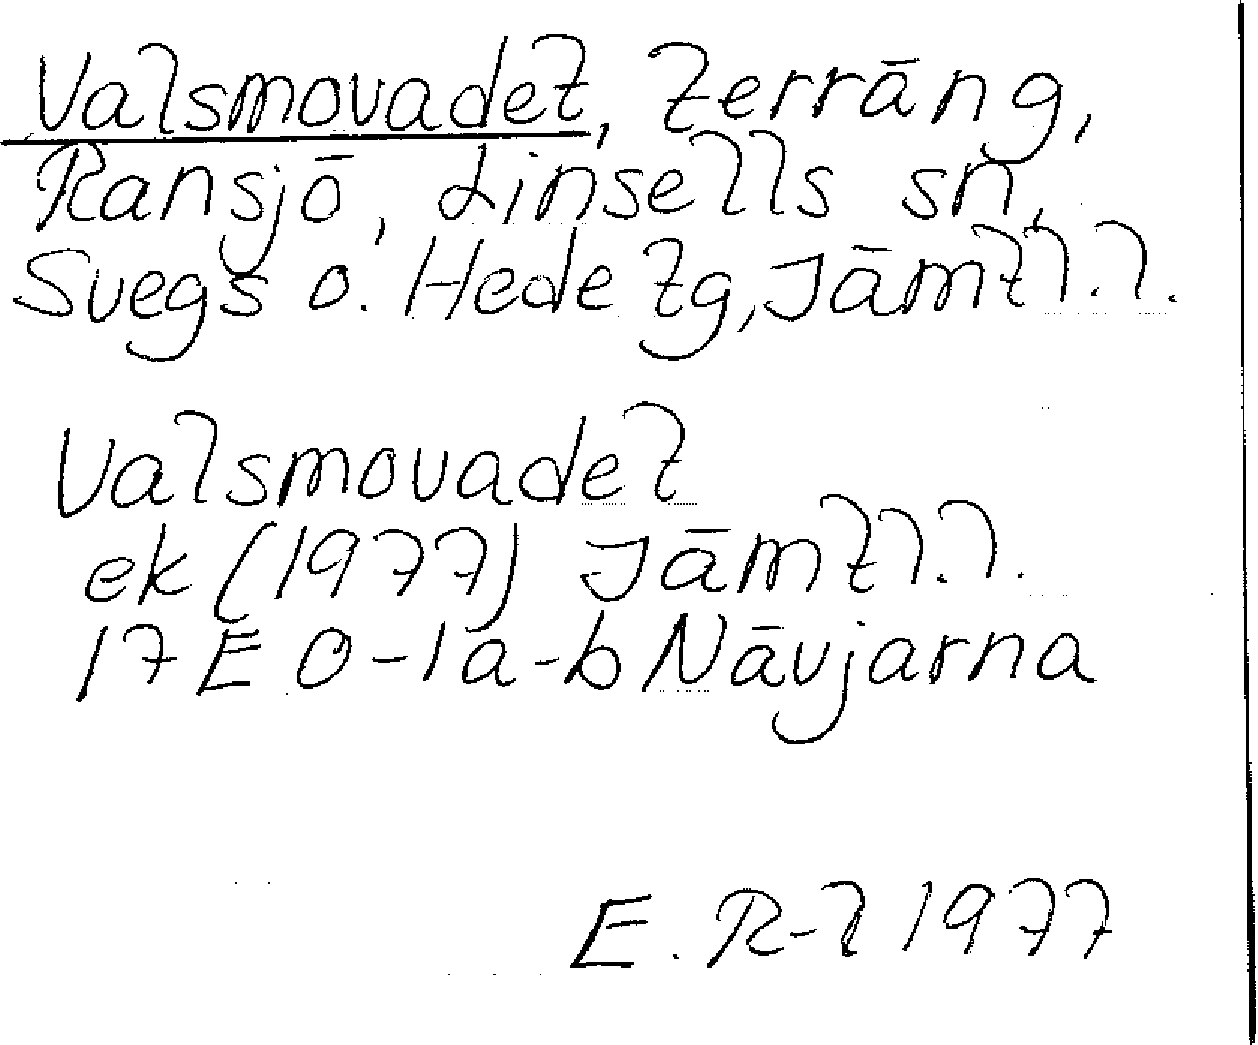 Valsmovadet, terräng,
Ransjö, Linsells sn,
Svegs o. Hede tg, Jämtl.l.
Valsmovadet
ek (1977) Jämtl.l.
17E 0-1a-b Nävjarna
E. R-l 1977